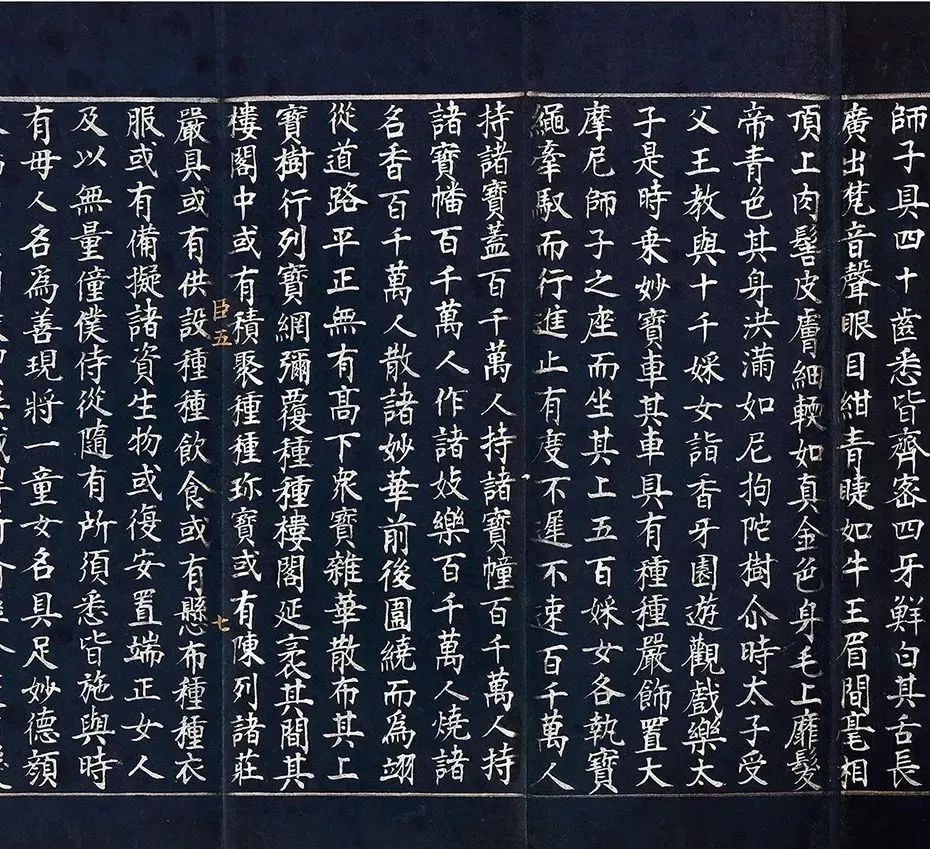 師子具四十齒悉皆齊密四牙鮮白其舌長
廣出梵音聲眼目紺青睫如牛王眉間毫相
頂上肉髻皮膚細輭如真金色身毛上靡髮
帝青色其身洪滿如尼拘陀樹尒時太子受
父王教與十千婇女詣香牙園遊觀戲樂太
子是時乗妙寶車其車具有種種嚴飾置大
摩尼師子之座而坐其上五百婇女各執寶
繩牽馭而行進止有度不遲不速百千萬人
持諸寶蓋百千萬人持諸寶幢百千萬人持
諸寶幡百千萬人作諸妓樂百千萬人燒諸
名香百千萬人散諸妙華前後圍繞而為翊
從道路平正無有髙下眾寶雜華散布其上
寶樹行列寶網彌覆種種樓閣延袤其間其
樓閣中或有積聚種種珎寶或有陳列諸莊
臣五 七
嚴具或有供設種種飲食或有懸布種種衣
服或有備擬諸資生物或復安置端正女人
及以無量僮僕侍從隨有所須悉皆施與時
有母人名為善現將一童女名具足妙德顏